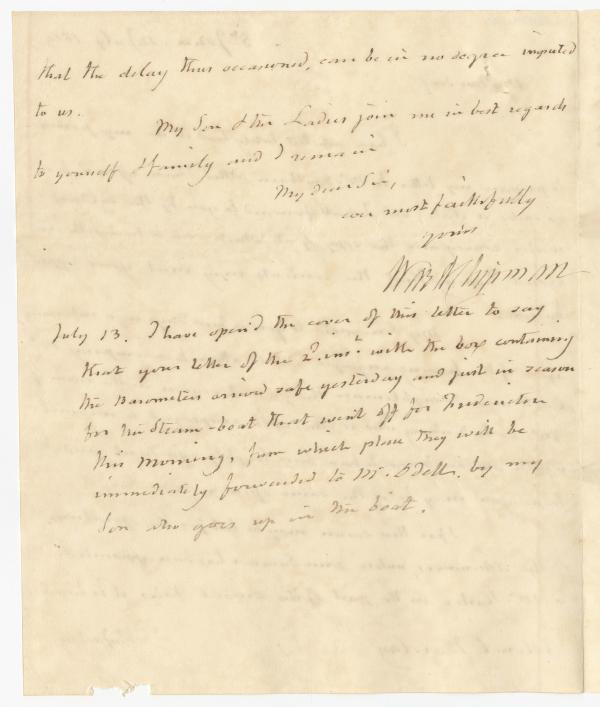 that the delay thus occasioned, can be in no degree imputed
to us.
My Son & the Ladies join me in best regards
to yourself & family and I remain
My dear Sir,
ever most faithfully
yours
Ward Chipman
July 13. I have open'd the cover of this letter to say
that your letter of the 2d. inst. with the box containing
the Barometers arrived safe yesterday and just in season
for the Steam-boat that went off for Fredericton
this morning, from which place they will be
immediately forwarded to Mr. Odell, by my
Son who goes up in the boat.